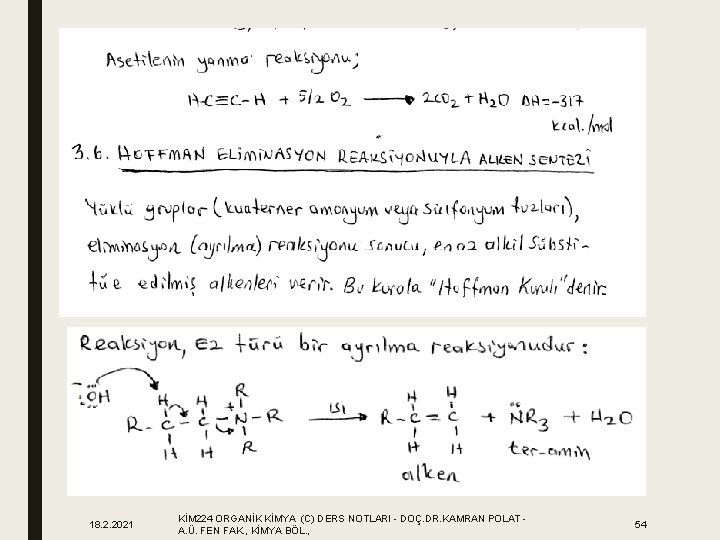 Asetilenin yanma reaksiyonu;
H-C≡C-H + 5/2 O2 → 2CO2 + H2O ΔH=-317
kcal./mol
3.6. HOFFMAN ELİMİNASYON REAKSİYONUYLA ALKEN SENTEZİ
Yüklü gruplar (kuaterner amonyum veya sülfonyum tuzları),
eliminasyon (ayrılma) reaksiyonu sonucu, en az alkil sübsti-
tüe edilmiş alkenleri verir. Bu kurala "Hoffman Kuralı" denir.
Reaksiyon, E2 türü bir ayrılma reaksiyonudur:
-:ÖH H H R H H
R-C-C-N+-R ısı → R-C=C + N̈R3 + H2O
H H R H H ter-amin
alken
18.2.2021
KİM224 ORGANİK KİMYA (C) DERS NOTLARI - DOÇ.DR.KAMRAN POLAT -
A.Ü. FEN FAK., KİMYA BÖL.,
54